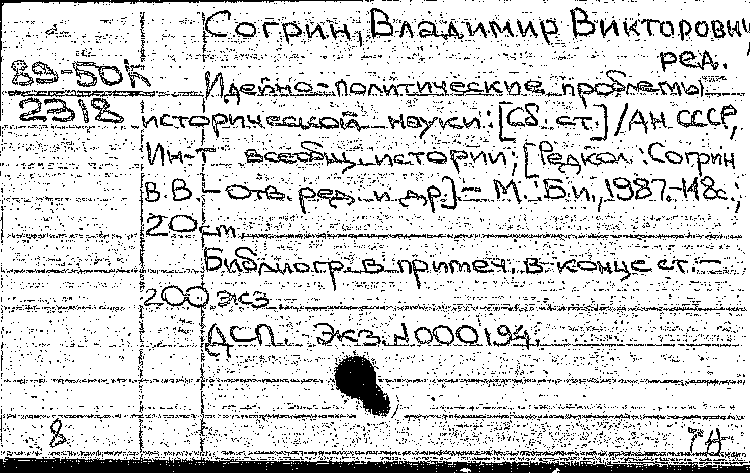 Согрин, Владимир Викторович
ред.
89-50К
2318
Идейно-политические проблемы
исторической науки: [Сб. ст.] / АН СССР,
Ин-т всеобщ. истории; [Редкол.: Согрин
В.В. - отв. ред. и др.] - М.: Б.и., 1987.-148с.;
20 см.
Библиогр. в примеч. в конце ст. -
200 экз.
ДСП. Экз. N000194.
8
7А